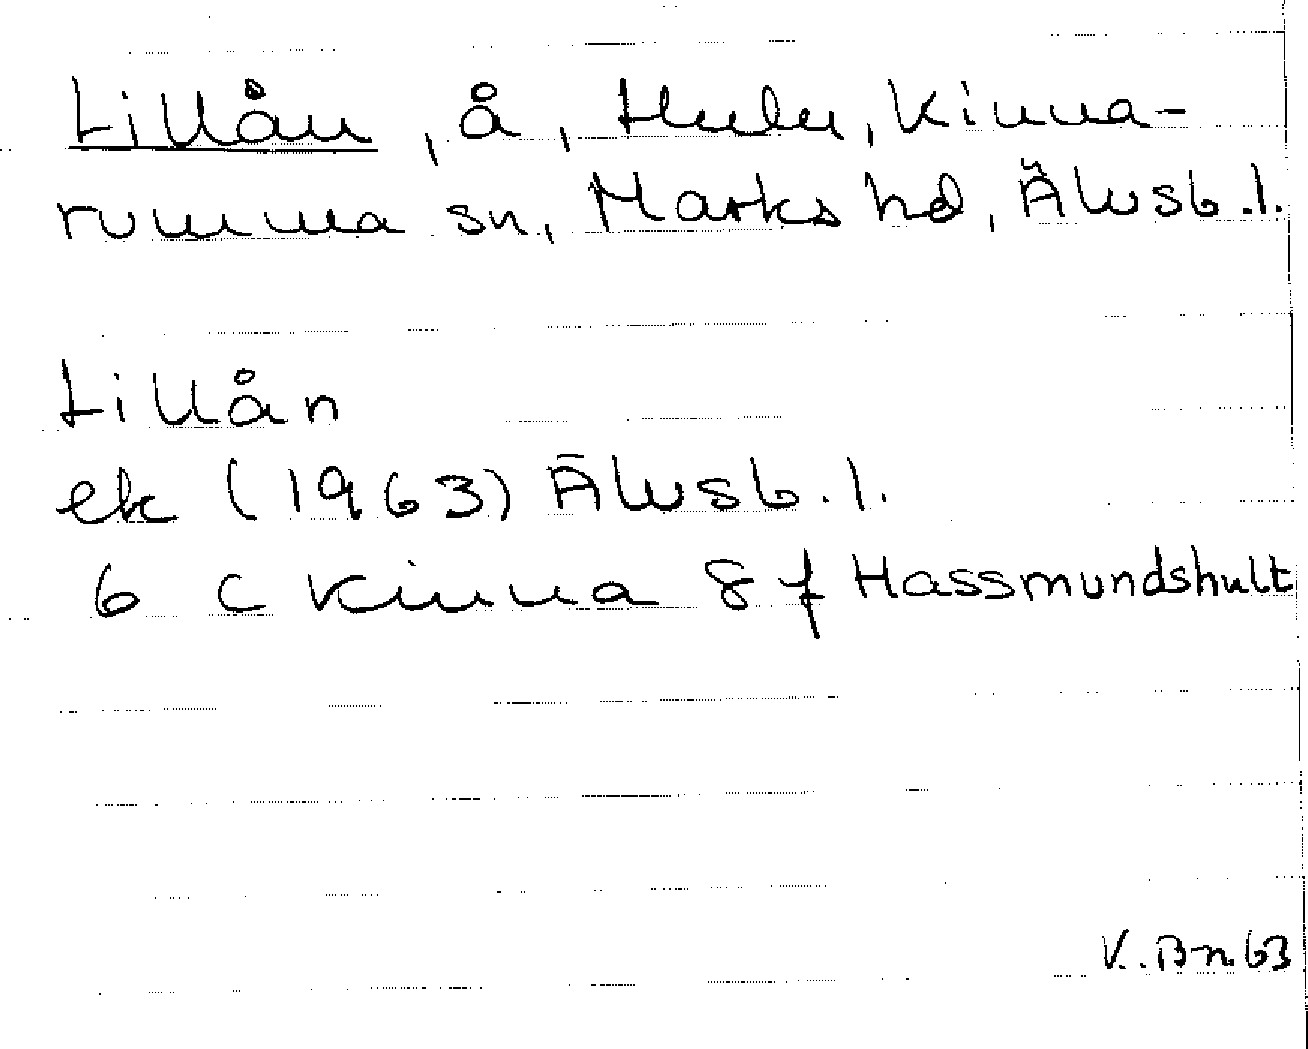 Lillån, å, Hulu, Kinna-
rumma sn, Marks hd, Älvsb.l.
Lillån
ek (1963) Älvsb.l.
6 C Kinna 8 f Hassmundshult
V. Bn 63